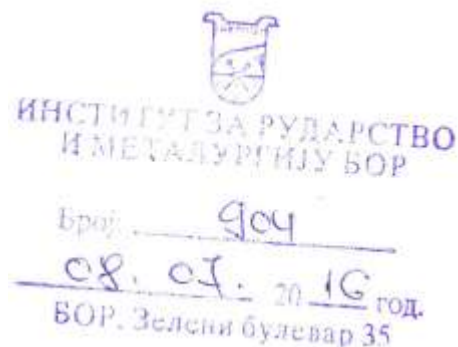 ИНСТИТУТ ЗА РУДАРСТВО
И МЕТАЛУРГИЈУ БОР
Број: 904
08. 07. 2016 год.
БОР, Зелени булевар 35